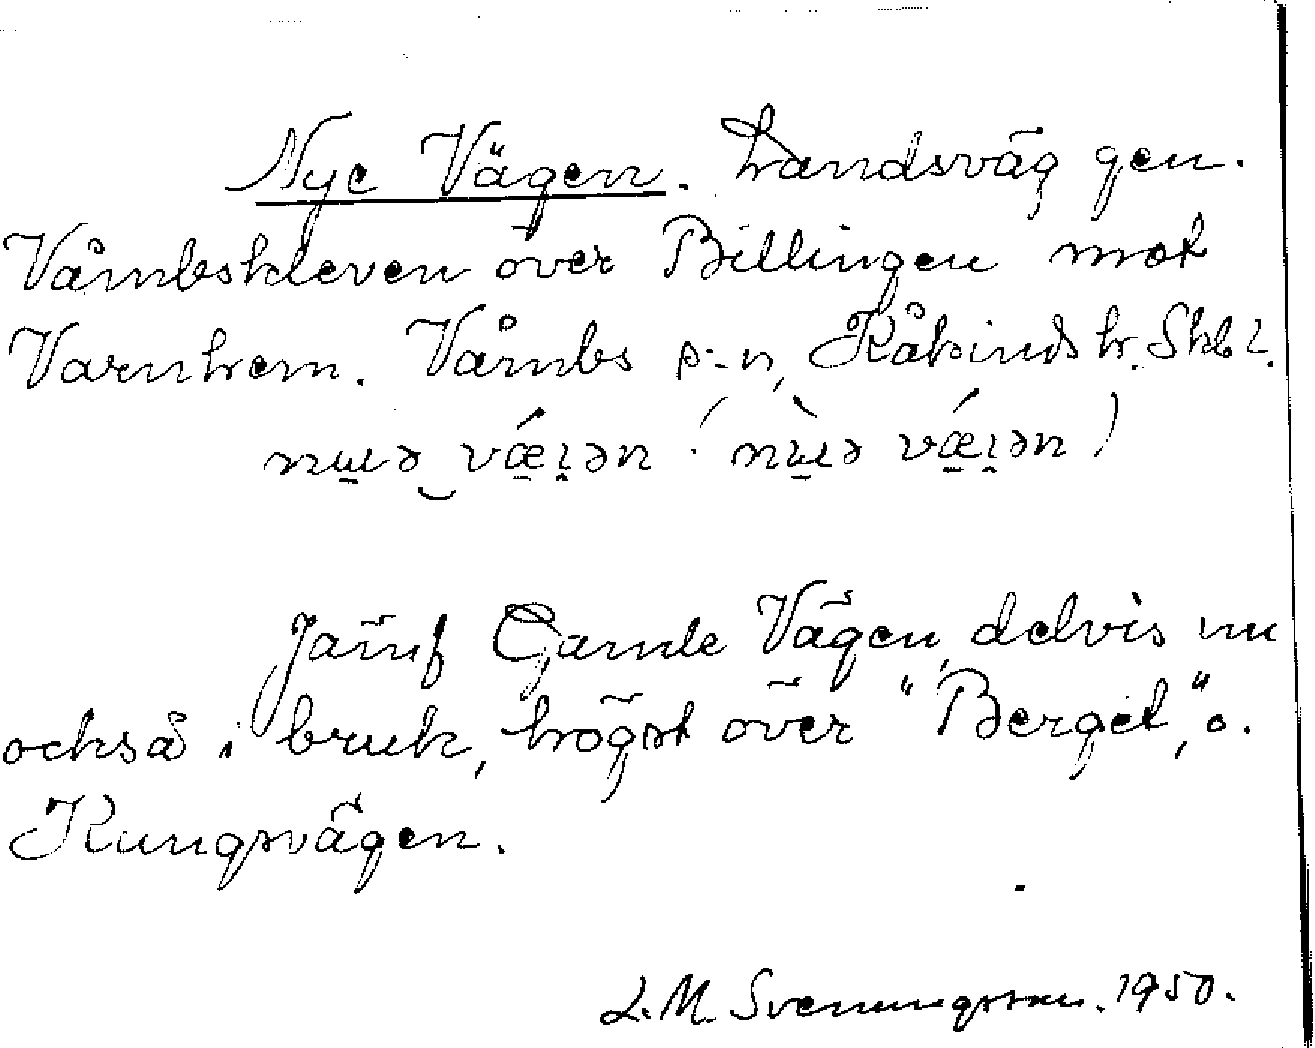 Nye Vägen. Landsväg gen.
Våmbskleven över Billingen mot
Varnhem. Våmbs s:n, Kåkinds hr. Skbl.
Jämf Gamle Vägen, delvis nu
också i bruk, högst över "Berget", o.
Kungsvägen.
L.M. Svenungsson. 1950.